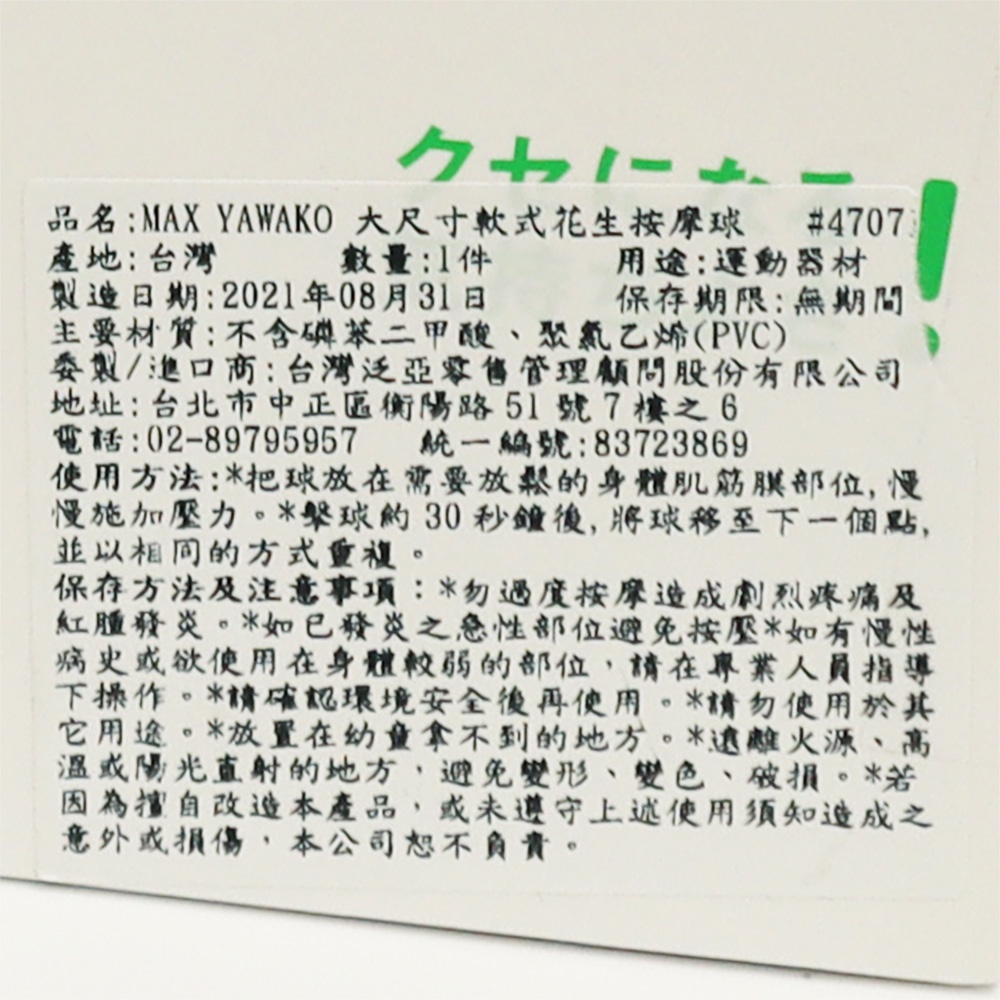 クセになる!
品名:MAX YAWAKO 大尺寸軟式花生按摩球 #4707
產地:台灣 數量:1件 用途:運動器材
製造日期:2021年08月31日 保存期限:無期間
主要材質:不含磷苯二甲酸、聚氯乙烯(PVC)
委製/進口商:台灣泛亞零售管理顧問股份有限公司
地址:台北市中正區衡陽路 51 號 7 樓之 6
電話:02-89795957 統一編號:83723869
使用方法:*把球放在需要放鬆的身體肌筋膜部位,慢
慢施加壓力。*擊球約 30 秒鐘後,將球移至下一個點,
並以相同的方式重複。
保存方法及注意事項:*勿過度按摩造成劇烈疼痛及
紅腫發炎。*如已發炎之急性部位避免按壓*如有慢性
病史或欲使用在身體較弱的部位,請在專業人員指導
下操作。*請確認環境安全後再使用。*請勿使用於其
它用途。*放置在幼童拿不到的地方。*遠離火源、高
溫或陽光直射的地方,避免變形、變色、破損。*若
因為擅自改造本產品,或未遵守上述使用須知造成之
意外或損傷,本公司恕不負責。